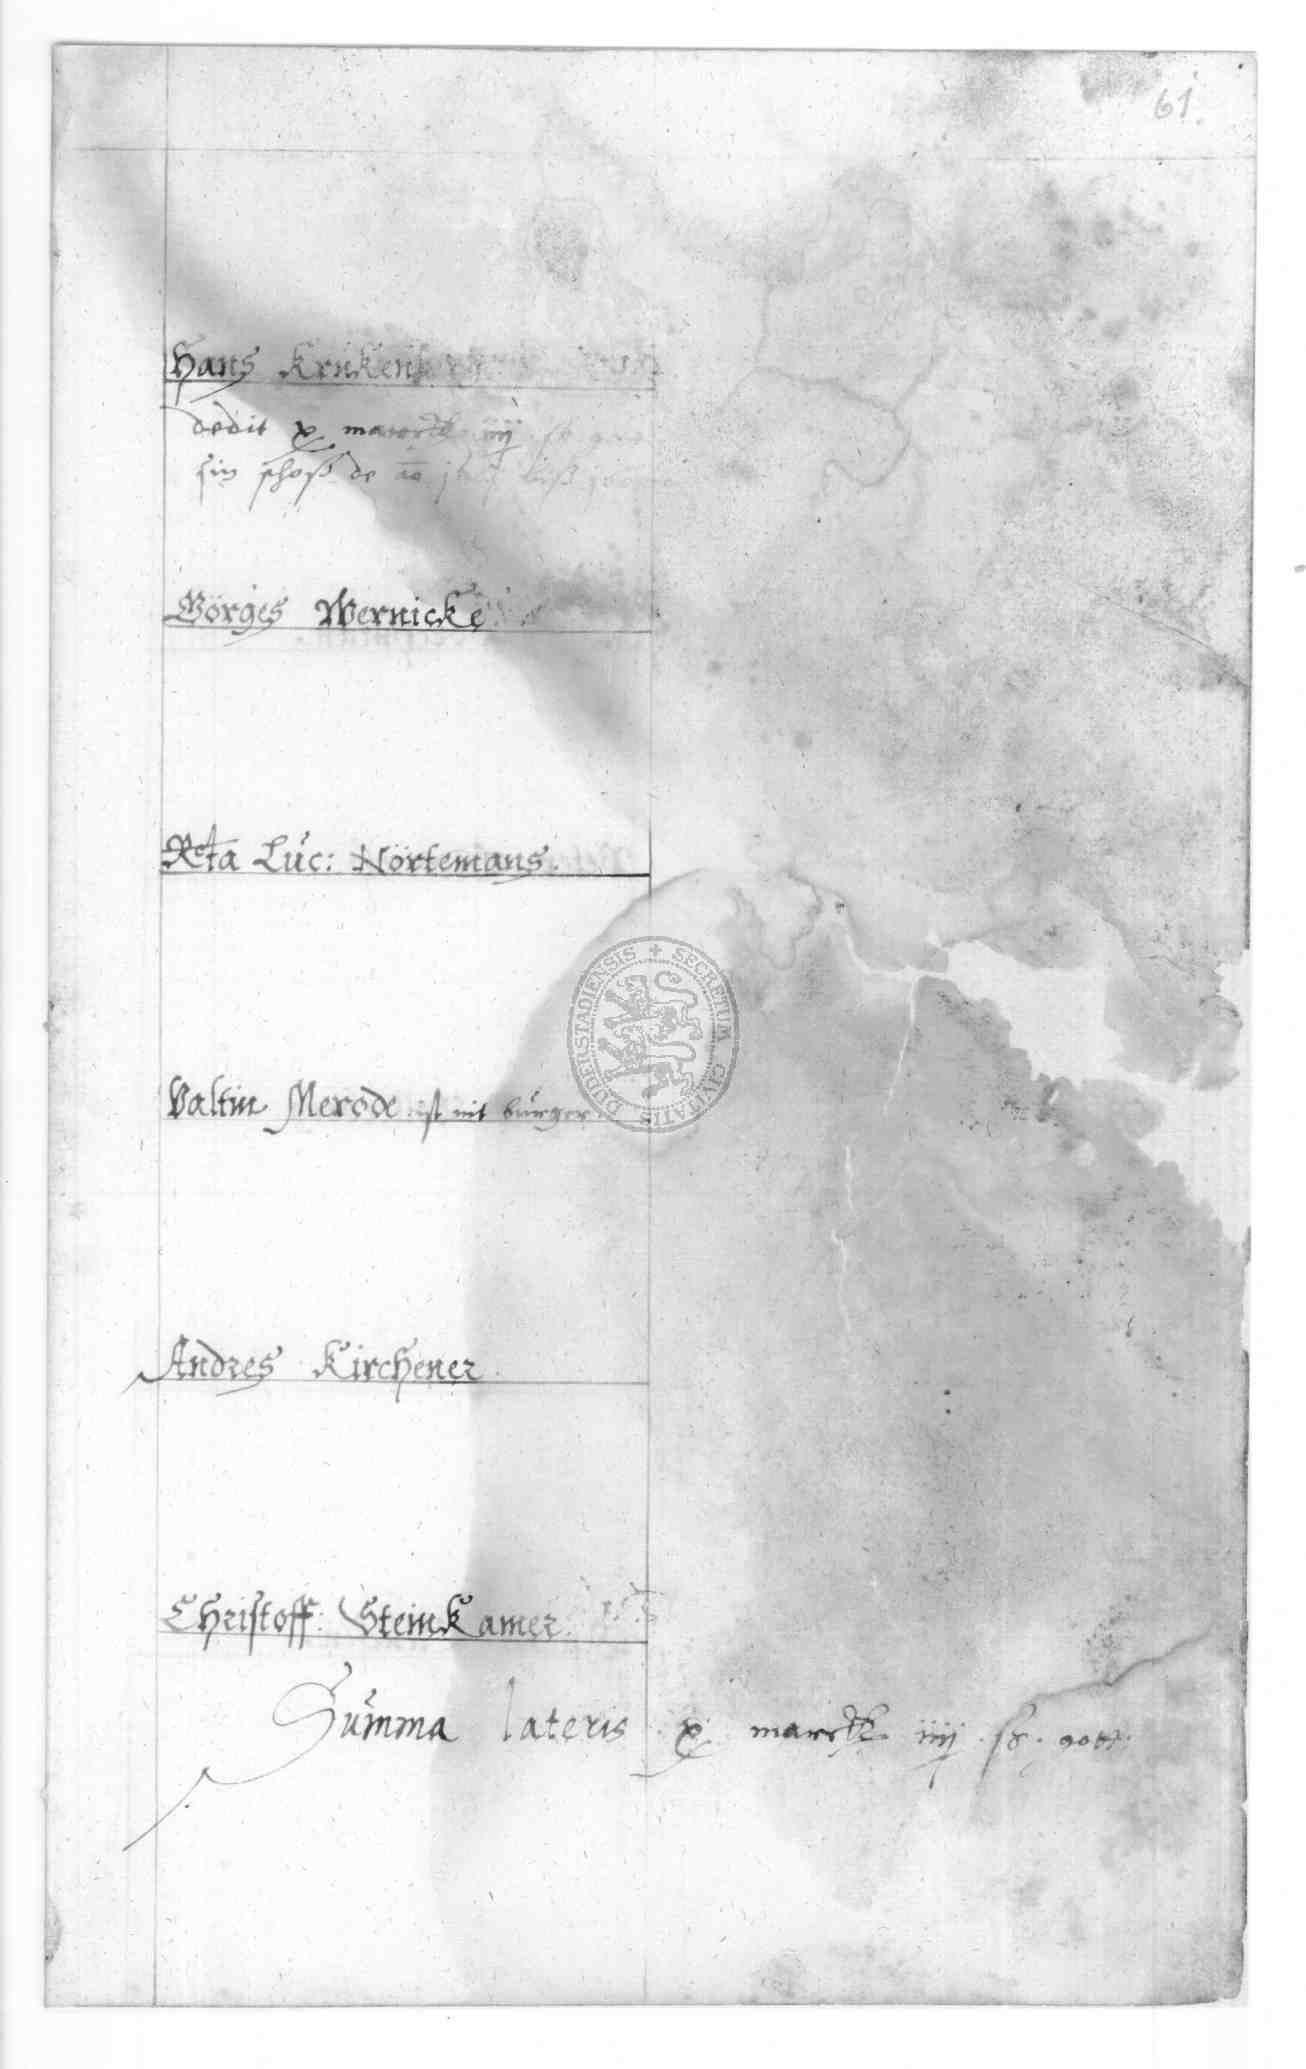 61.
Hans Krukenberg
dedit x marck iiij ß
sin schoß de ao
Görges Wernicke
Rcta Luc: Nörtemans.
Valtin Merode ist nit burger
Andres Kirchener
Christoff Steinkamer.
Summa lateris x marck iiij ß. gott.
SECRETUM CIVITATIS DUDERSTADIENSIS